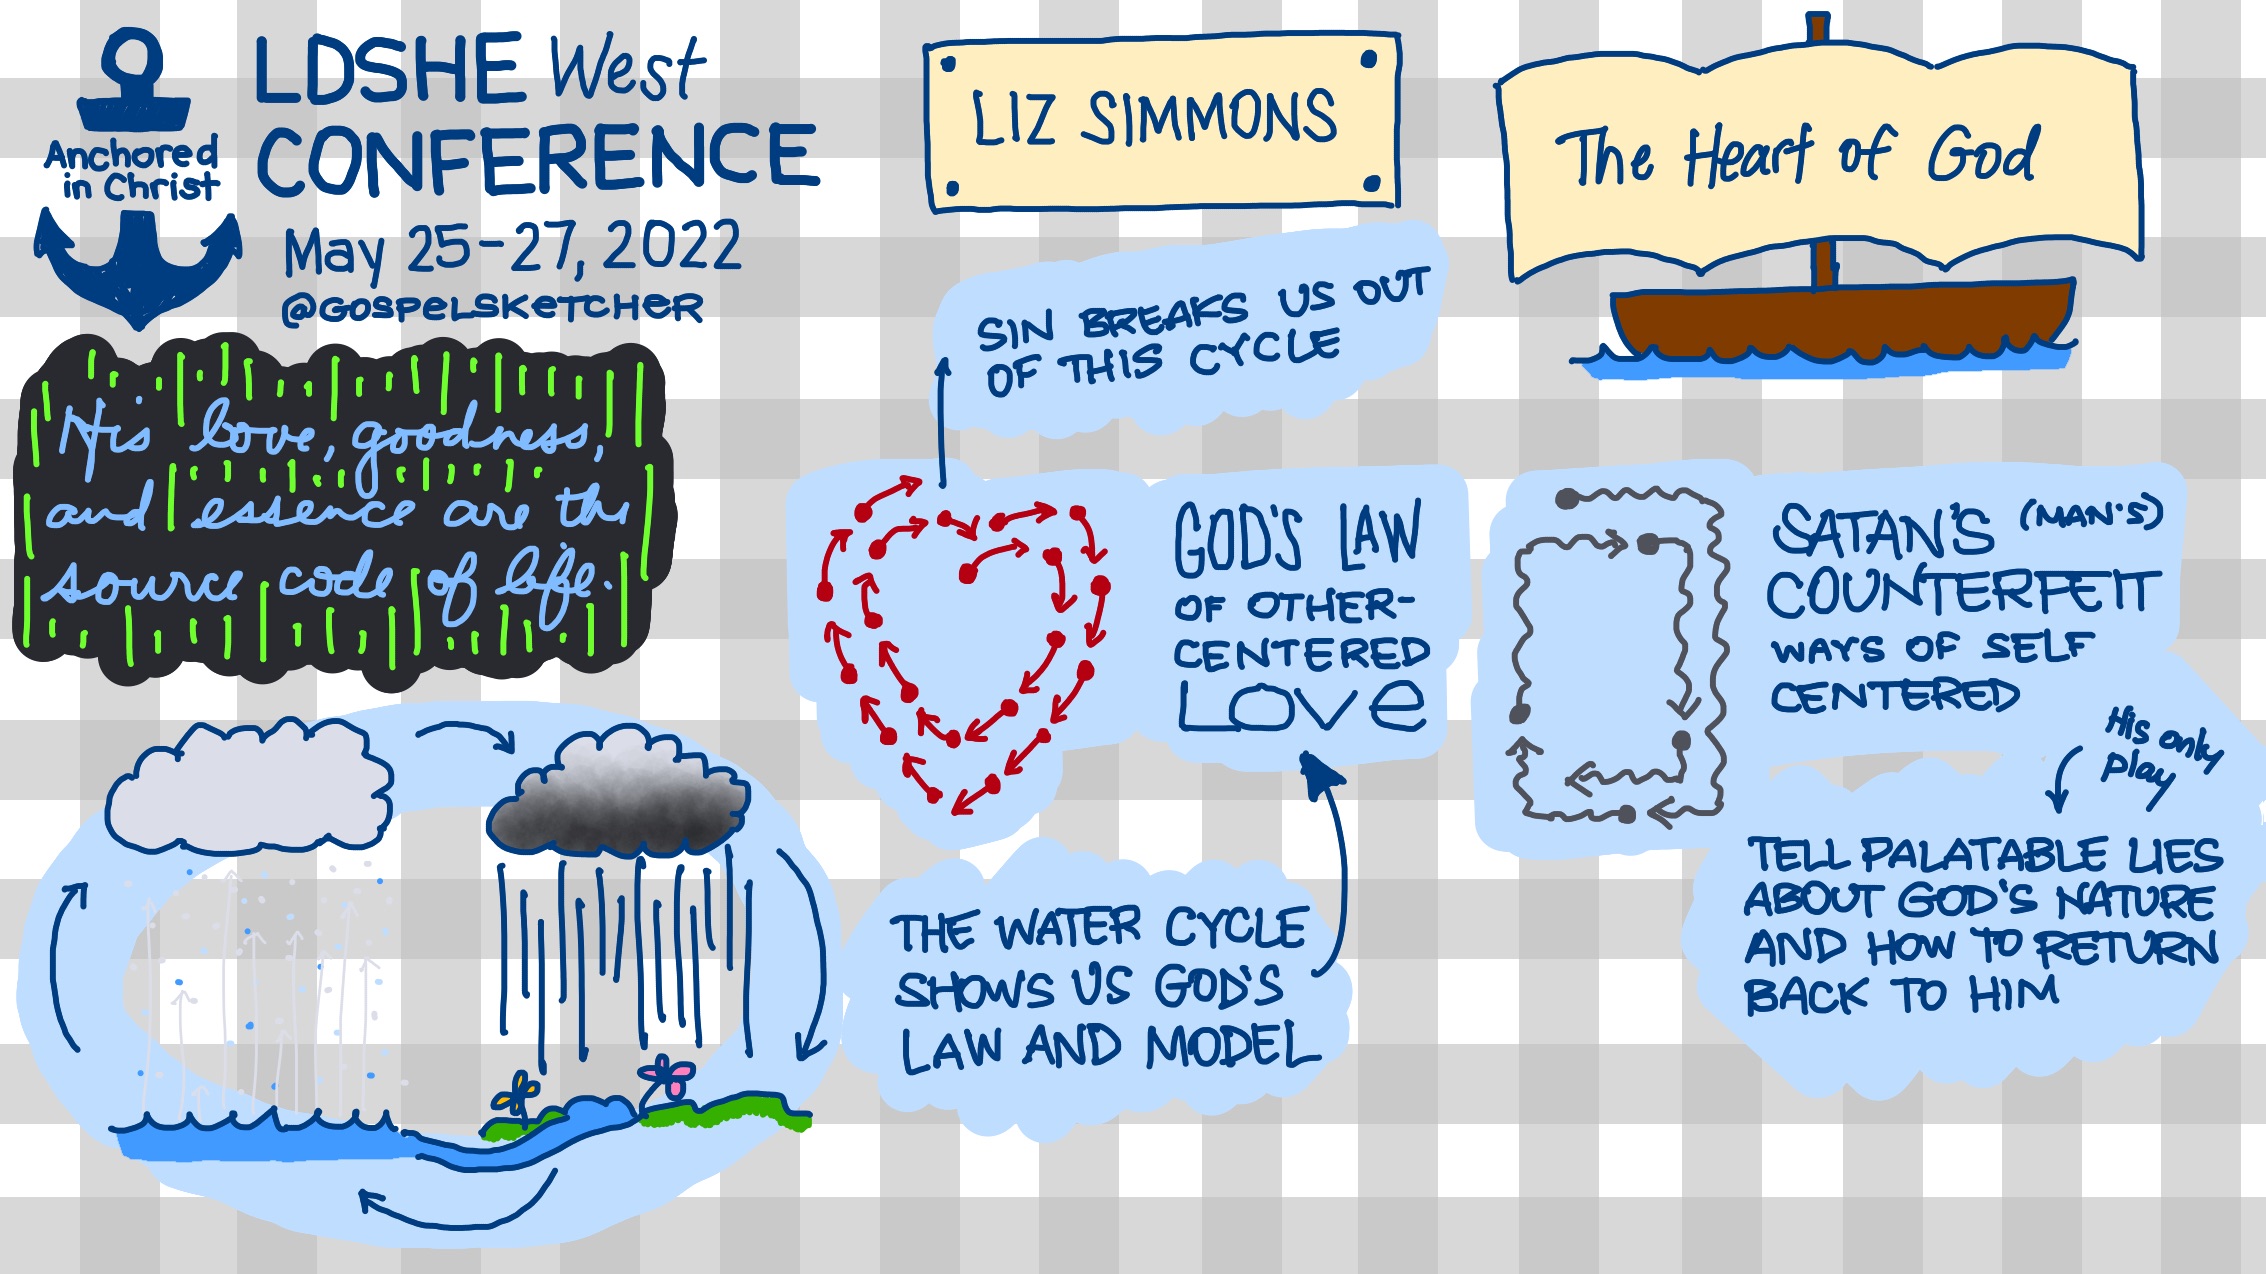 Anchored
in Christ
LDSHE West
CONFERENCE
May 25-27, 2022
@GOSPELSKETCHER
LIZ SIMMONS
The Heart of God
His love, goodness,
and essence are the
source code of life.
SIN BREAKS US OUT
OF THIS CYCLE
GOD'S LAW
OF OTHER-
CENTERED
LOVE
THE WATER CYCLE
SHOWS US GOD'S
LAW AND MODEL
SATAN'S (MAN'S)
COUNTERFEIT
WAYS OF SELF
CENTERED
His only
play
TELL PALATABLE LIES
ABOUT GOD'S NATURE
AND HOW TO RETURN
BACK TO HIM